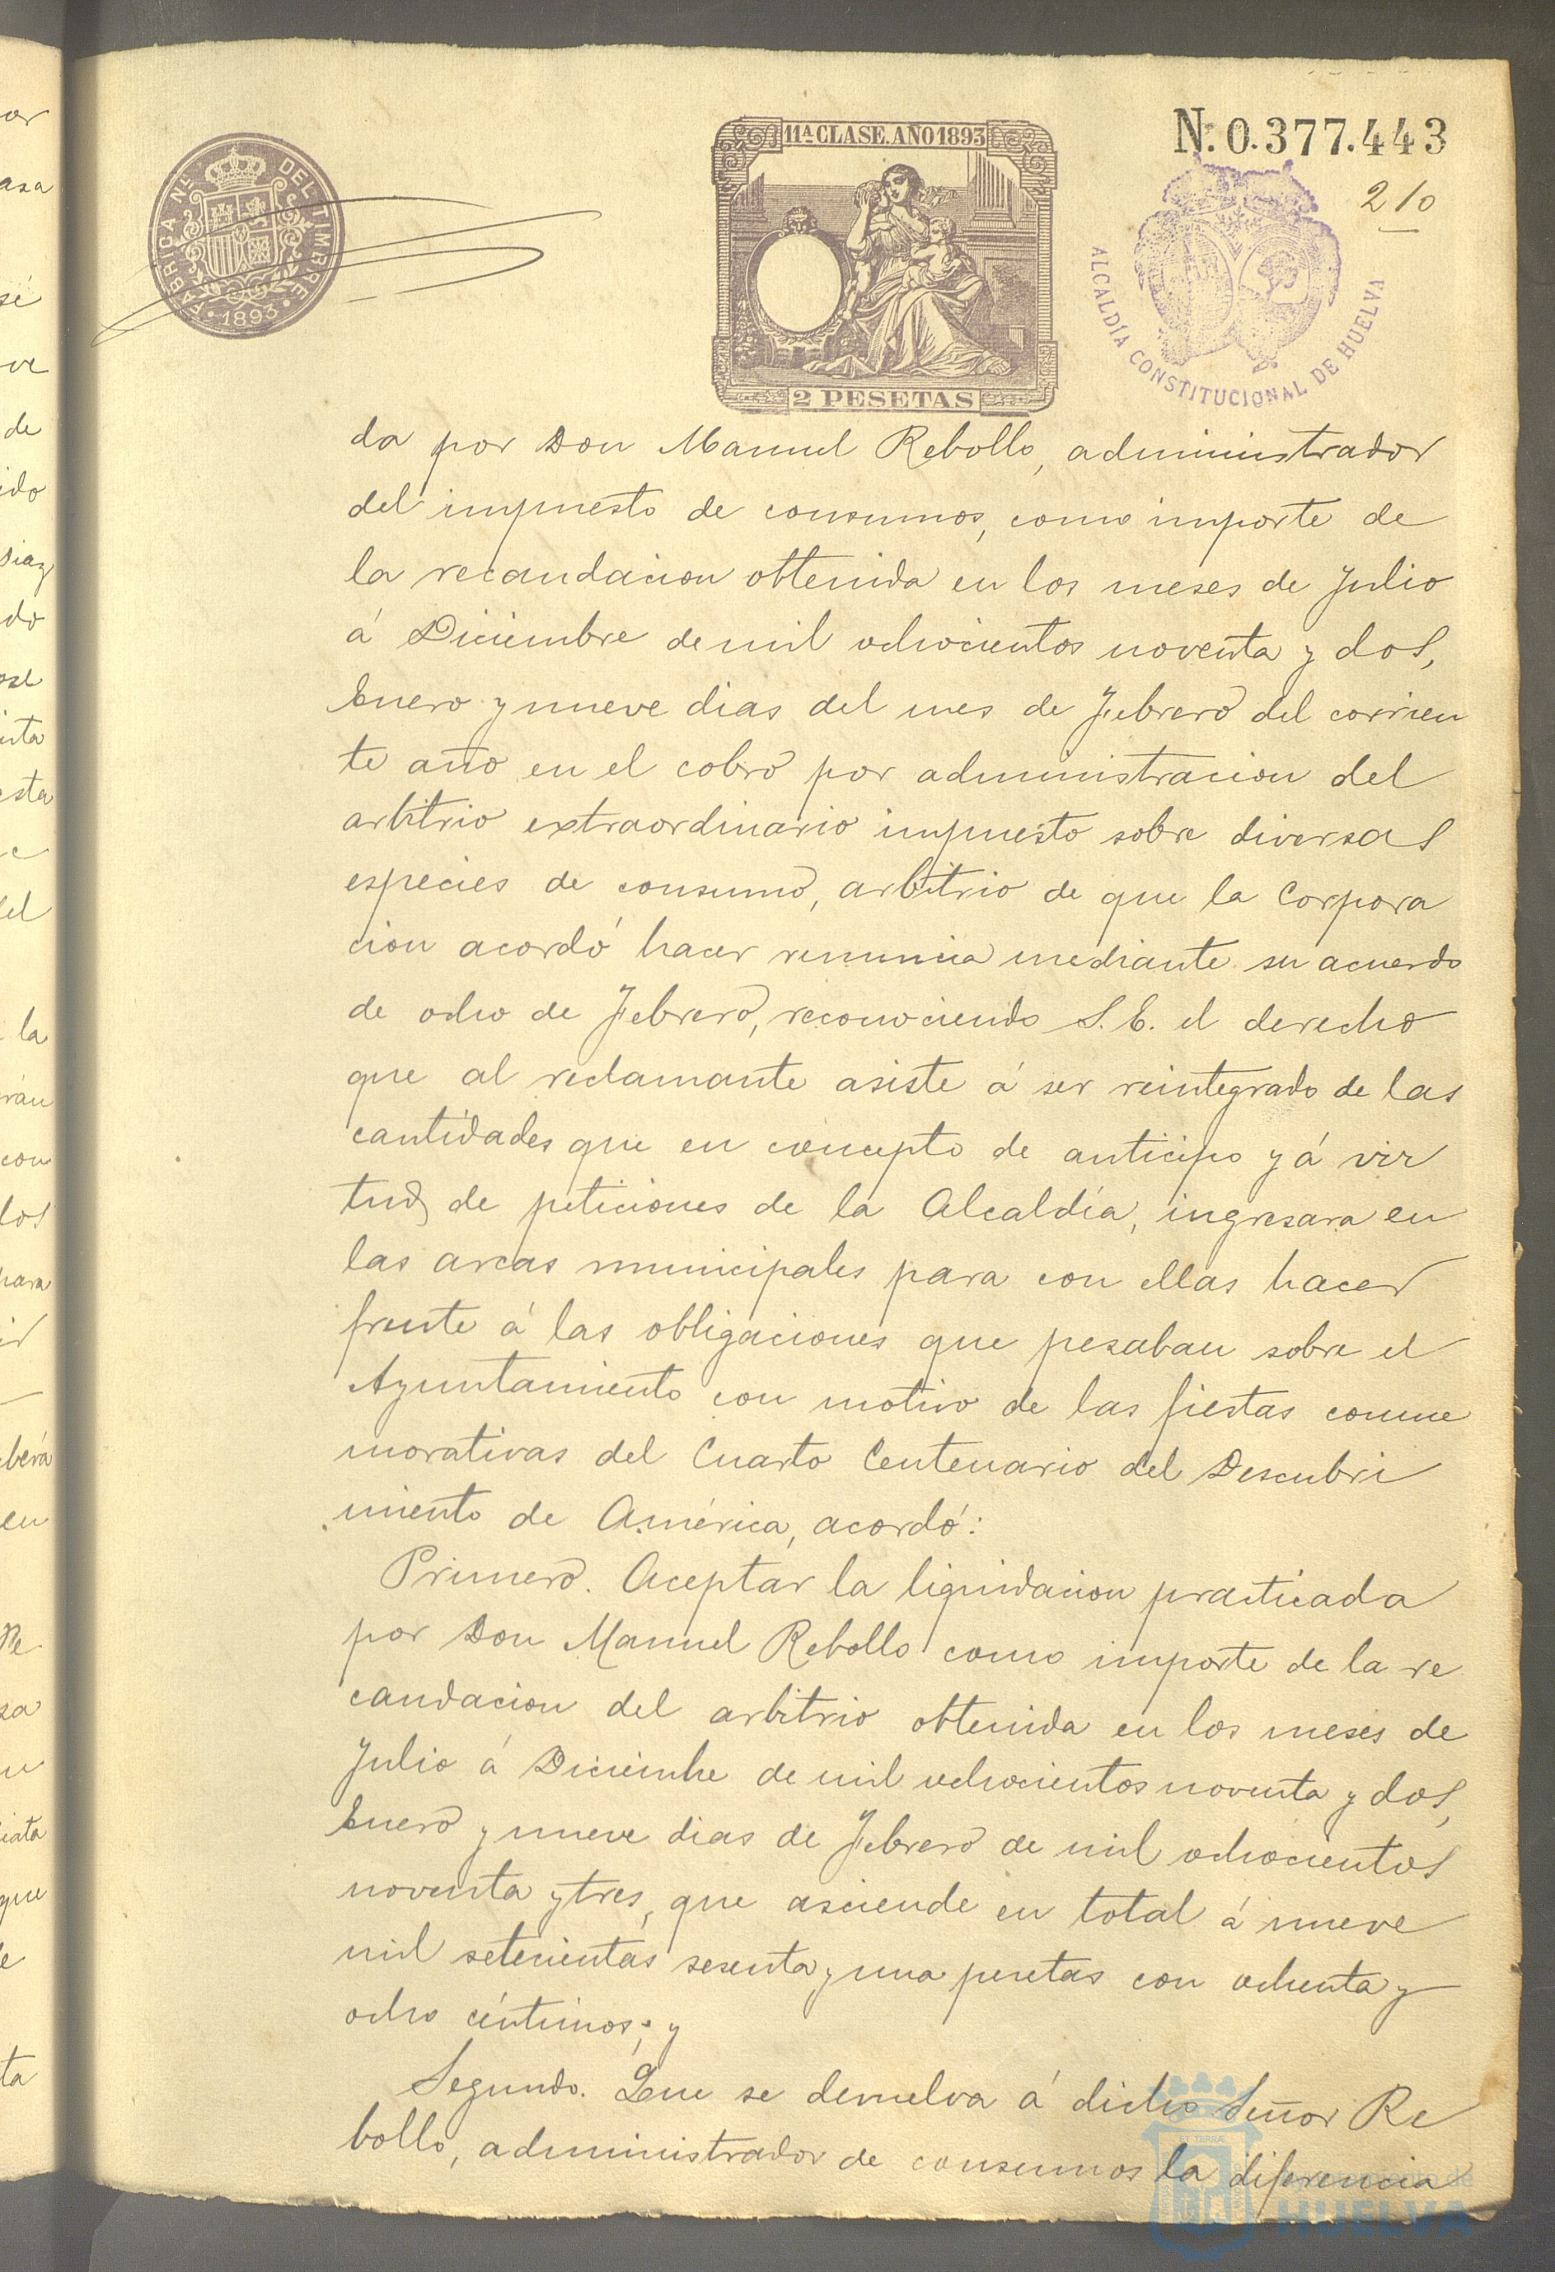 FABRICA Nᴸ DEL TIMBRE
1893
11ª CLASE. AÑO 1893
2 PESETAS
Nº. 0.377.443
210
ALCALDÍA CONSTITUCIONAL DE HUELVA
da por Don Manuel Rebollo, administrador
del impuesto de consumos, como importe de
la recaudacion obtenida en los meses de Julio
á Diciembre de mil ochocientos noventa y dos,
Enero y nueve dias del mes de Febrero del corrien
te año en el cobro por administracion del
arbitrio extraordinario impuesto sobre diversas
especies de consumo, arbitrio de que la Corpora
cion acordó hacer renuncia mediante su acuerdo
de ocho de Febrero, reconociendo S. E. el derecho
que al reclamante asiste á ser reintegrado de las
cantidades que en concepto de anticipo y á vir
tud de peticiones de la Alcaldía, ingresara en
las arcas municipales para con ellas hacer
frente á las obligaciones que pesaban sobre el
Ayuntamiento con motivo de las fiestas conme
morativas del Cuarto Centenario del Descubri
miento de América, acordó:
Primero. Aceptar la liquidacion practicada
por Don Manuel Rebollo como importe de la re
caudacion del arbitrio obtenida en los meses de
Julio á Diciembre de mil ochocientos noventa y dos,
Enero y nueve dias de Febrero de mil ochocientos
noventa y tres, que asciende en total á nueve
mil setecientas sesenta y una pesetas con ochenta y
ocho céntimos; y
Segundo. Que se devuelva á dicho Señor Re
bollo, administrador de consumos la diferencia
Ayuntamiento de
HUELVA